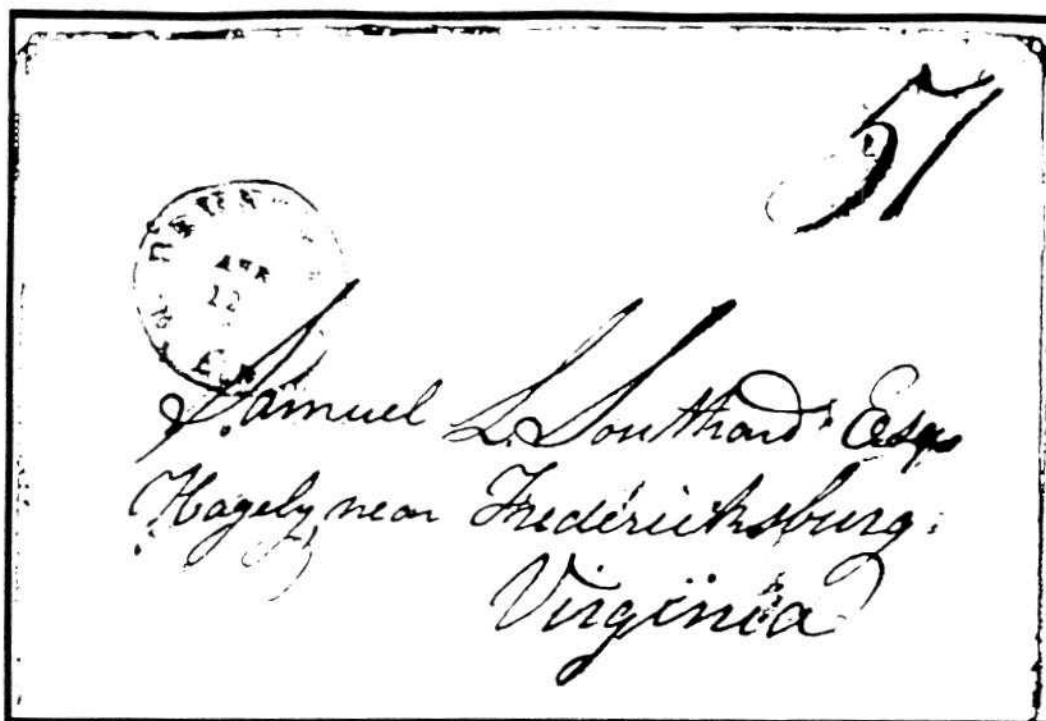 57
APR
12
Samuel L. Southard Esqr
Hagely near Fredericksburg
Virginia